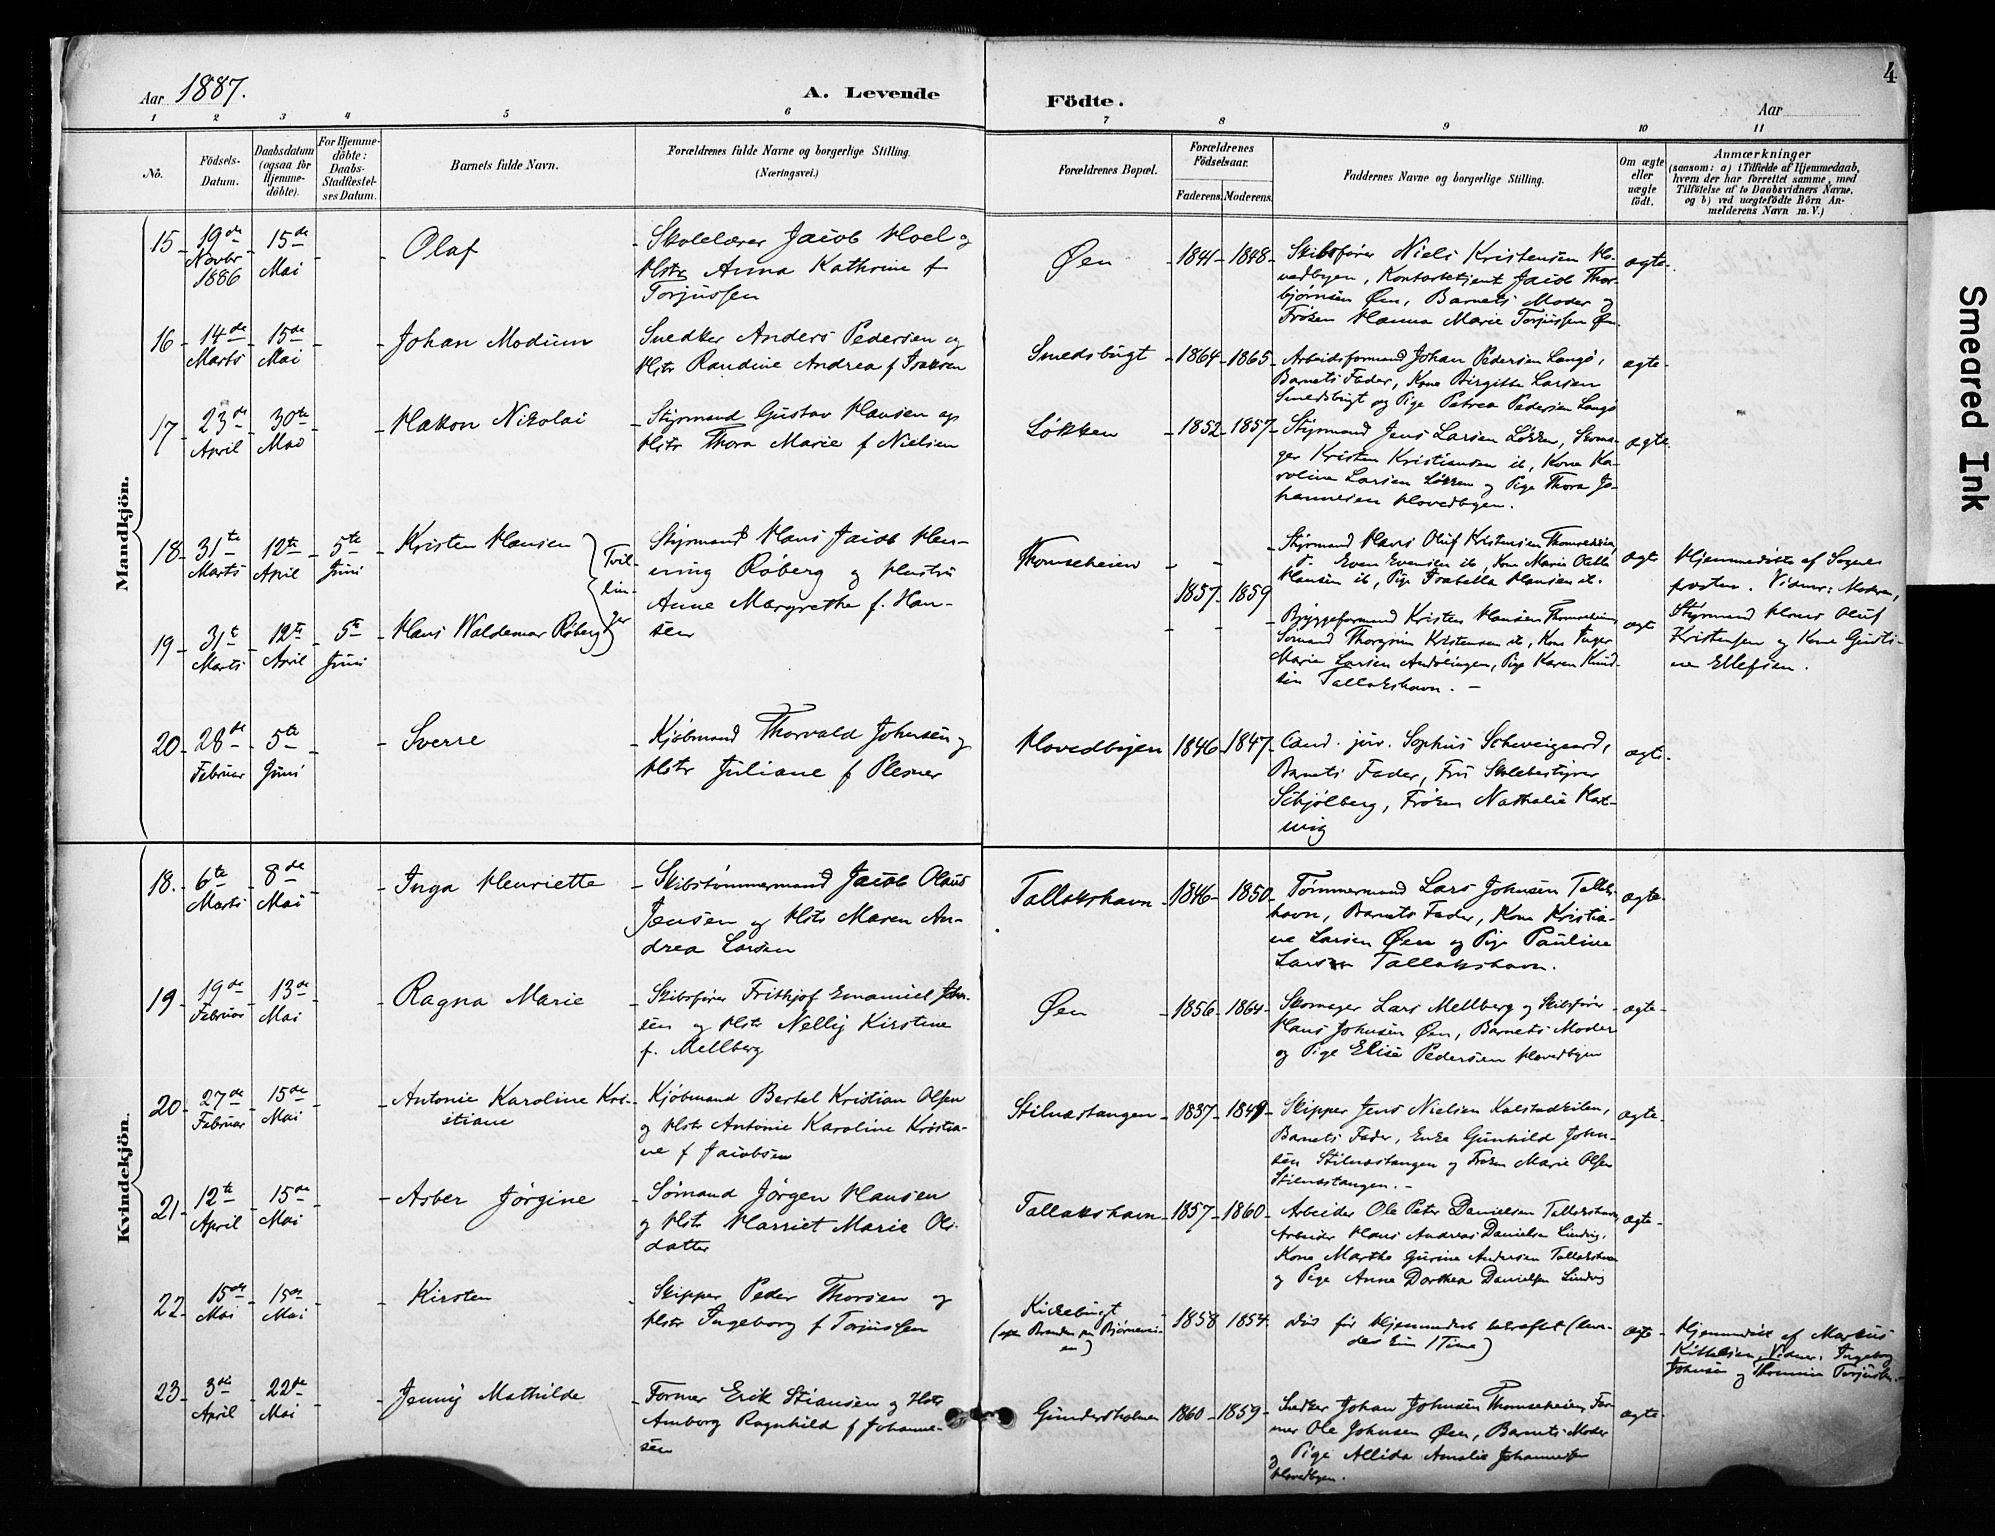 Aar 1887.
A. Levende
Födte.
Aar
4
1 2 3 4 5 6 7 8 9 10 11
No.
Födsels-Datum.
Daabsdatum (ogsaa for Hjemme-döbte).
For Hjemme-döbte: Daabs-Stadfæstel-ses Datum.
Barnets fulde Navn.
Forældrenes fulde Navne og borgerlige Stilling. (Næringsvei.)
Forældrenes Bopæl.
Forældrenes Födselsaar.
Faderens. Moderens.
Faddernes Navne og borgerlige Stilling.
Om ægte eller uægte födt.
Anmærkninger
(saasom: a) i Tilfælde af Hjemmedaab,
hvem der har forrettet samme, med
Tilföielse af to Daabsvidners Navne.
og b) ved uægtefödte Börn An-
melderens Navn m. V.)
Mandkjön.
15 19de Novbr 1886 15de Mai Olaf
Skolelærer Jacob Hoel og
Hstr Anna Kathrine f
Torjussen
Øen 1841 1848
Skibsfører Niels Kristensen Ho-
vedbyen, Kontorbetjent Jacob Thor-
bjørnsen Øen, Barnets Moder og
Frøken Hanna Marie Torjussen Øen
ægte
16 14de Marts 15de Mai Johan Modium
Snedker Anders Pedersen og
Hstr Randine Andrea f Isaksen
Smedsbugt 1864 1865
Arbeidsformand Johan Pedersen Langø,
Barnets Fader, Kone Birgitte Larsen
Smedsbugt og Pige Petrea Pedersen Langø
ægte
17 23de April 30te Mai Hakon Nikolai
Styrmand Gustav Hansen og
Hstr Thora Marie f Nielsen
Løkken 1852 1857
Styrmand Jens Larsen Løkken, Skoma-
ger Kristen Kristiansen ib, Kone Ka-
roline Larsen Løkken og Pige Thora Jo-
hannesen Hovedbyen.
ægte
18 31te Marts 12te April 5te Juni Kristen Hansen
Tvil-
lin-
ger
Styrmand Hans Jacob Hen-
ning Røberg og Hustru
Anne Margrethe f. Han-
sen
Thomseheien 1857 1859
Styrmand Hans Oluf Kristensen Thomseheien,
Even Evensen ib, Kone Marie
Hansen ib, Pige Isabella Hansen ib.
ægte
Hjemmedöbte af Sogne-
præsten. Vidner: Moderen,
Styrmand Hans Oluf
Kristensen og Kone Gusti-
ne Ellefsen.
19 31te Marts 12te April 5te Juni Hans Waldemar Røberg
Bryggeformand Kristen Hansen Thomseheien,
Sømand Thorgrim Kristensen ib, Kone Inger
Marie Larsen, Pige Karen Knud-
sen Tallakshavn.
ægte
20 28de Februar 5te Juni Sverre
Kjøbmand Thorvald Johnsen og
Hstr Juliane f Plesner
Hovedbyen 1846 1847
Cand. jur. Sophus Schweigaard,
Barnets Fader, Fru Skolebestyrer
Schjølberg, Frøken Nathalie Hart-
wig
ægte
Kvindekjön.
18. 6te Marts 8de Mai Inga Henriette
Skibstømmermand Jacob Olaus
Jensen og Hstr Maren An-
drea Larsen
Tallakshavn 1846 1850
Tømmermand Lars Johnsen Tallaks-
havn, Barnets Fader, Kone Kristia-
ne Larsen Øen og Pige Pauline
Larsen Tallakshavn.
ægte
19 19de Februar 13de Mai Ragna Marie
Skibsfører Frithjof Emanuel John-
sen og Hstr Nelly Kirstine
f. Mellberg
Øen 1856 1864
Skomager Lars Mellberg og Skibsfører
Hans Johnsen Øen, Barnets Moder
og Pige Elise Pedersen Hovedbyen
ægte
20 27de Februar 15de Mai Antonie Karoline Kri-
stiane
Kjøbmand Bertel Kristian Olsen
og Hstr Antonie Karoline Kristia-
ne f Jacobsen
Stilnæstangen 1837 1849
Skipper Jens Nielsen Kalstadkilen,
Barnets Fader, Enke Gunhild John-
sen Stilnæstangen og Frøken Marie Olsen
Stilnæstangen.
ægte
21 12te April 15de Mai Asber Jørgine
Sømand Jørgen Hansen
og Hstr Harriet Marie Ols-
datter
Tallakshavn 1857 1860
Arbeider Ole Peter Danielsen Tallakshavn,
Arbeider Hans Andreas Danielsen Lindvig,
Kone Marthe Gurine Andersen Tallakshavn
og Pige Anne Dorthea Danielsen Lindvig
ægte
22 15de Mai 15de Mai Kirsten
Skipper Peder Thorsen og
Hstr Ingeborg f Torjussen
Kirkebugt
1858 1854
Døds før Hjemmedaab bekræftet (leve-
des kun 1 Time)
ægte
Hjemmedöbt af Markus
Kittelsen, Vidner: Ingeborg
Johnsen og Thomine Torjussen
23 3die April 22de Mai Jenny Mathilde
Former Erik Stiansen og Hstr
Amborg Ragnhild f Johanne-
sen
Gundersholmen 1860 1859
Snedker Johan Johnsen Thomseheien, For-
mer Ole Johnsen Øen, Barnets Moder
og Pige Allida Amalie Johannesen
Hovedbyen.
ægte
Smeared Ink